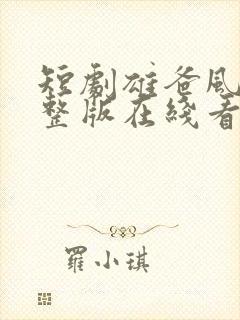 短劇雄爸風
整版在綫看
羅小琪